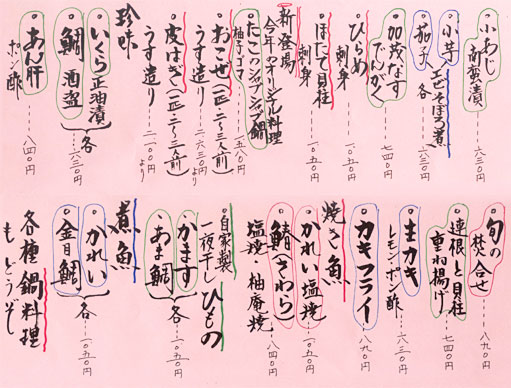 小あじ
南蛮漬 六三〇円
小芋 エビそぼろ煮
茄子 各
加茂なす
でんがく 七四〇円
ひらめ
刺身 一〇五〇円
ほたて貝柱
刺身 一〇五〇円
新登場
今年のオリジナル料理
たこのシャブシャブ鍋
柚子ゴマ 一五八〇円
おこぜ(一匹 二〜三人前)
うす造り 二六三〇円より
皮はぎ(一匹 二〜三人前)
うす造り 二一〇〇円より
珍味
いくら正油漬
鯛酒盗 各 六三〇円
あん肝
ポン酢 八四〇円
旬の
焚合せ 八九〇円
連根と貝柱
重ね揚げ 七四〇円
生カキ
レモン・ポン酢 六三〇円
カキフライ 八九〇円
焼き魚
かれい塩焼 一〇五〇円
鰆(さわら)
塩焼・柚庵焼 八四〇円
自家製
一夜干し ひもの
かます
あま鯛 各 一〇五〇円
煮魚
かれい
金目鯛 各 一〇五〇円
各種鍋料理
もどうぞ